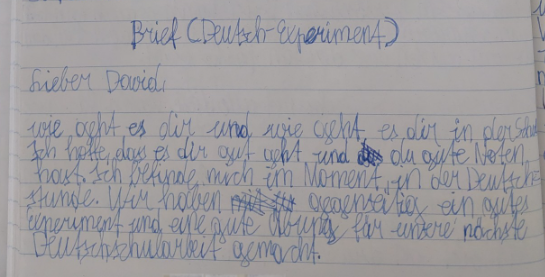 Brief (Deutsch-Experiment)
Lieber David,
wie geht es dir und wie geht es dir in der Schul
Ich hoffe, das es dir gut geht und du gute Noten
hast. Ich befinde mich im Moment in der Deutsch
stunde. Wir haben gegenseitig ein gutes
Experiment und eine gute Übung für unsere nächste
Deutschschularbeit gemacht.